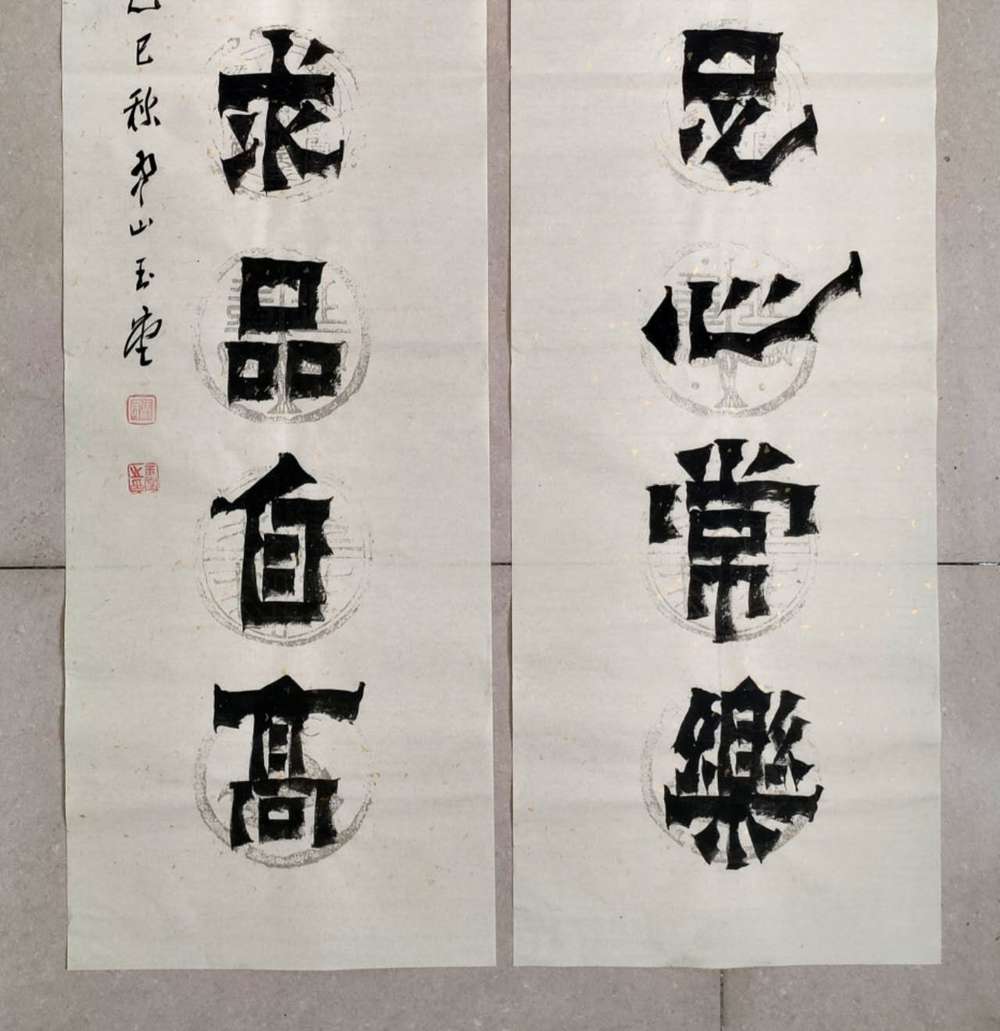 足心常樂
求品自高
巳秋山玉堂